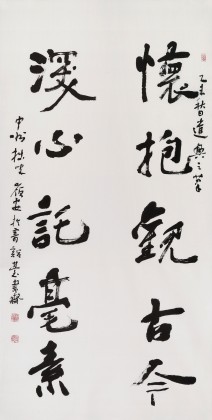 乙未秋日遣興之筆
懷抱觀古今
深心託毫素
中州